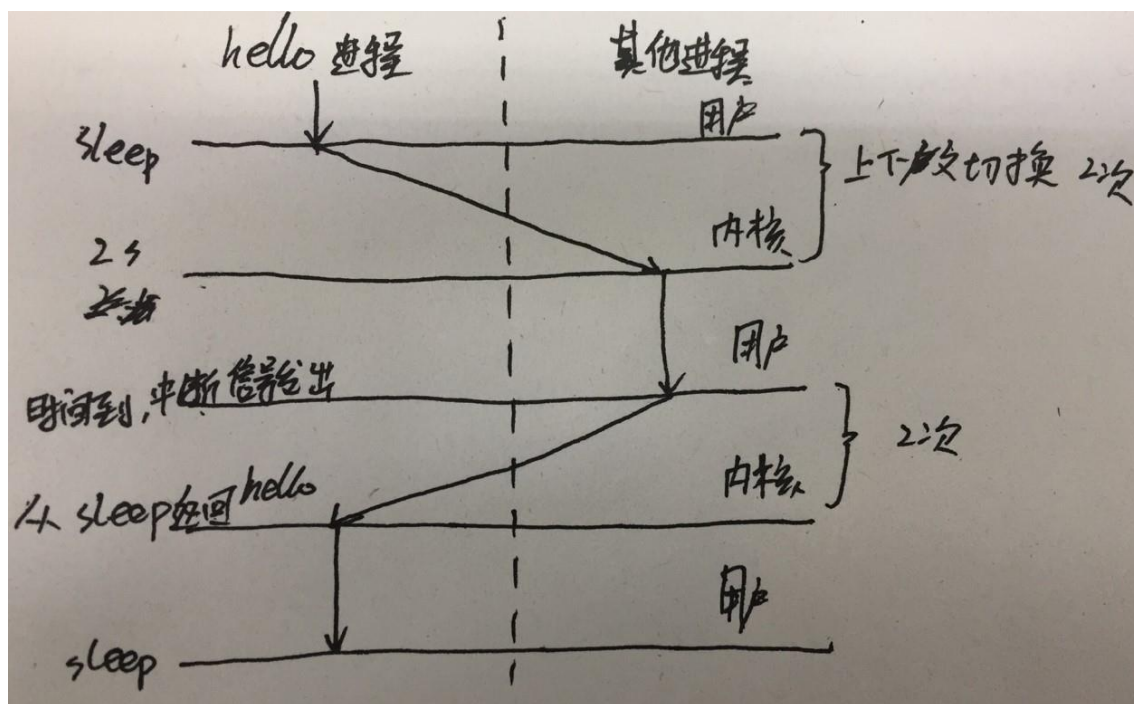 hello 进程
其他进程
用户
sleep
上下文切换 2次
内核
2s
用户
时间到,中断信号发出
2次
内核
从 sleep返回hello
用户
sleep